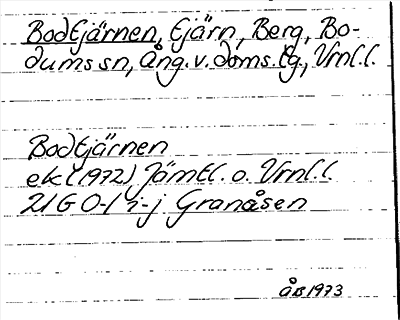 Bodtjärnen, tjärn, Berg, Bo-
dums sn, Ång. v. doms. tg., Vrnl. l.
Bodtjärnen
ek (1972) Jämtl. o. Vrnl. l.
21G 0-1 i-j Granåsen
ÅB 1973